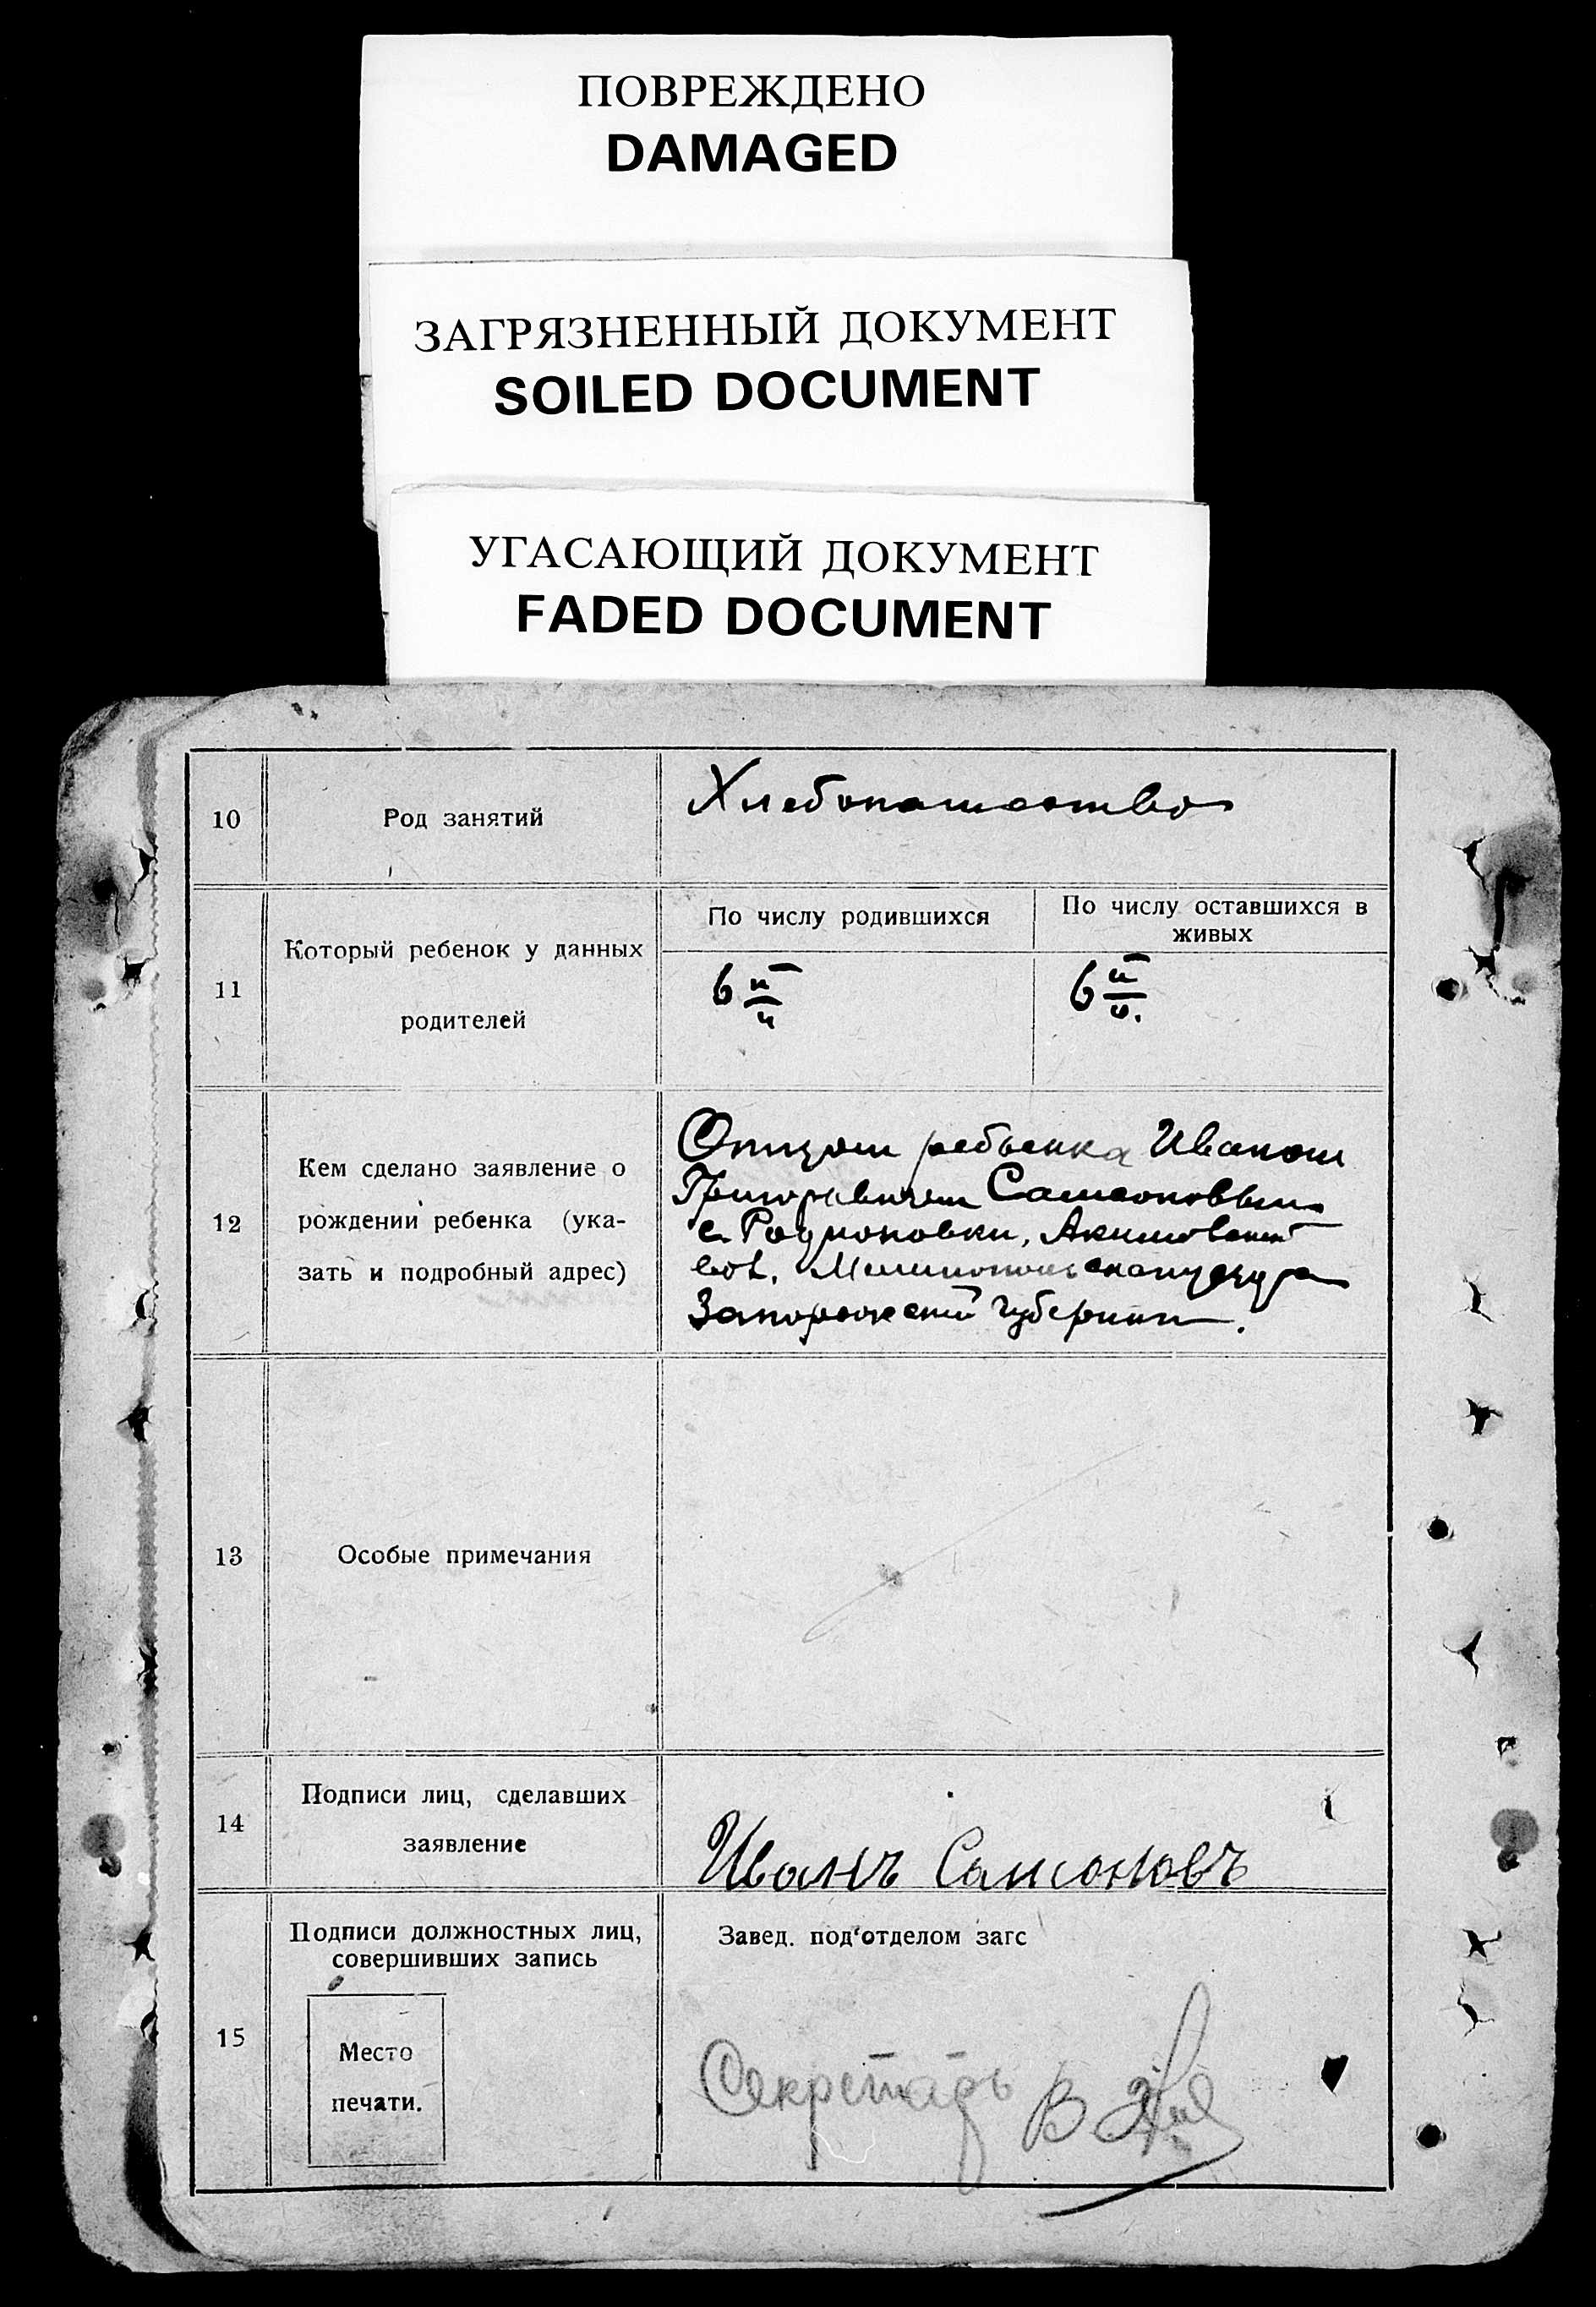 ПОВРЕЖДЕНО
DAMAGED
ЗАГРЯЗНЕННЫЙ ДОКУМЕНТ
SOILED DOCUMENT
УГАСАЮЩИЙ ДОКУМЕНТ
FADED DOCUMENT
10
Род занятий
Хлебопашество
11
Который ребенок у данных
родителей
По числу родившихся
По числу оставшихся в
живых
6
6
12
Кем сделано заявление о
рождении ребенка (ука-
зать и подробный адрес)
Отцом ребенка Иваном
Григорьевичем Самсоновым
с. Родионовки, Акимовской
вол. Мелитопольскаго уезда
Запорожской губернии.
13
Особые примечания
14
Подписи лиц, сделавших
заявление
Иванъ Самсоновъ
15
Подписи должностных лиц,
совершивших запись
Место
печати.
Завед. под'отделом загс
Секретарь В.